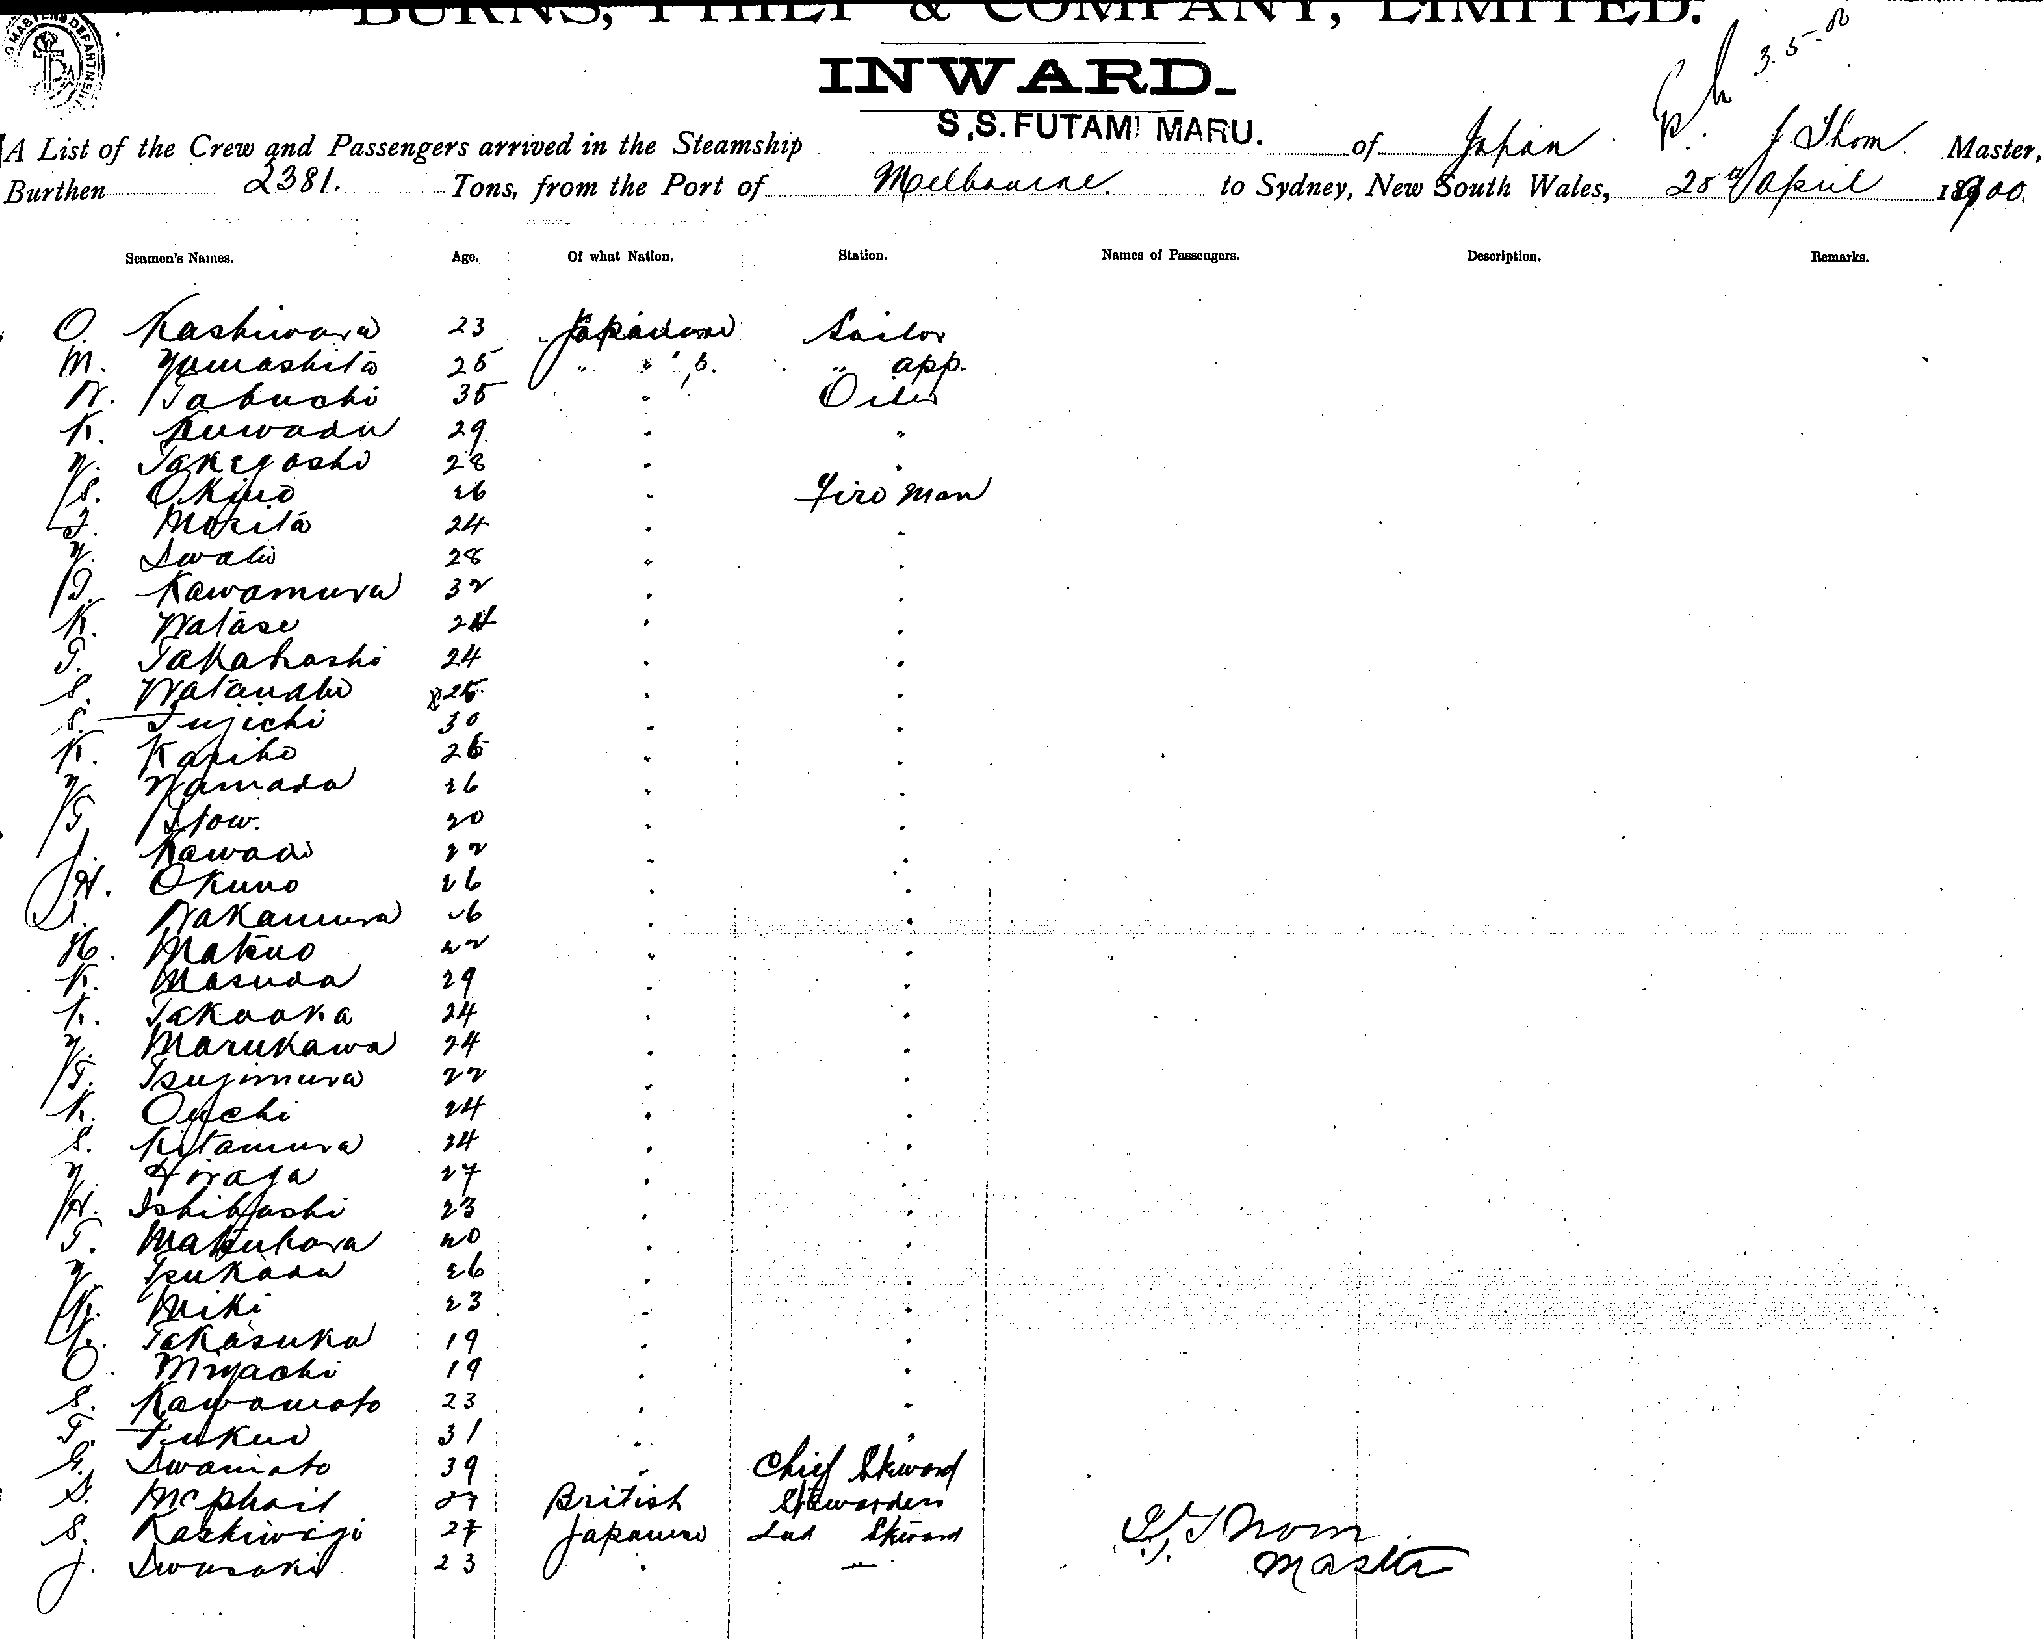 BURNS, PHILP & COMPANY, LIMITED.
INWARD.
3.5.00
S.S. FUTAMI MARU.
A List of the Crew and Passengers arrived in the Steamship of Japan J Thom Master,
Burthen 2381. Tons, from the Port of Melbourne. to Sydney, New South Wales, 28th April 1900.
Seamen's Names. Age. Of what Nation. Station. Names of Passengers. Description. Remarks.
O. Kashiwara 23 Japanese Sailor
M. Yamashita 25 " " " app.
N. Tabuchi 35 " Oiler
K. Kuwada 29 " "
Y. Takeyoshi 28 " "
S. Okino 26 " Fireman
T. Morita 24 " "
Y. Iwata 28 " "
T. Kawamura 32 " "
K. Watase 24 " "
T. Takahashi 24 " "
S. Watanabe 25 " "
S. Fujichi 30 " "
K. Kapiho 26 " "
Y. Yamada 26 " "
T. Itow. 20 " "
J. Kawada 22 " "
H. Okuno 26 " "
Nakamura 26 " "
H. Matsuo 22 " "
K. Masuda 29 " "
K. Takaoka 24 " "
Y. Marukawa 24 " "
T. Tsujimura 22 " "
K. Ouchi 24 " "
S. Kitamura 24 " "
Y. Hiraga 27 " "
H. Ishibashi 23 " "
T. Matsubara 20 " "
Y. Tsukada 26 " "
K. Miki 23 " "
K. Takasuka 19 " "
O. Miyachi 19 " "
S. Kawamoto 23 " "
T. Fukui 31 " "
G. Iwamoto 39 " Chief Steward
McPhail 27 British Stewardess
S. Kashiwagi 27 Japanese 2nd Steward
J. Iwasaki 23 " "
J. Thom
Master